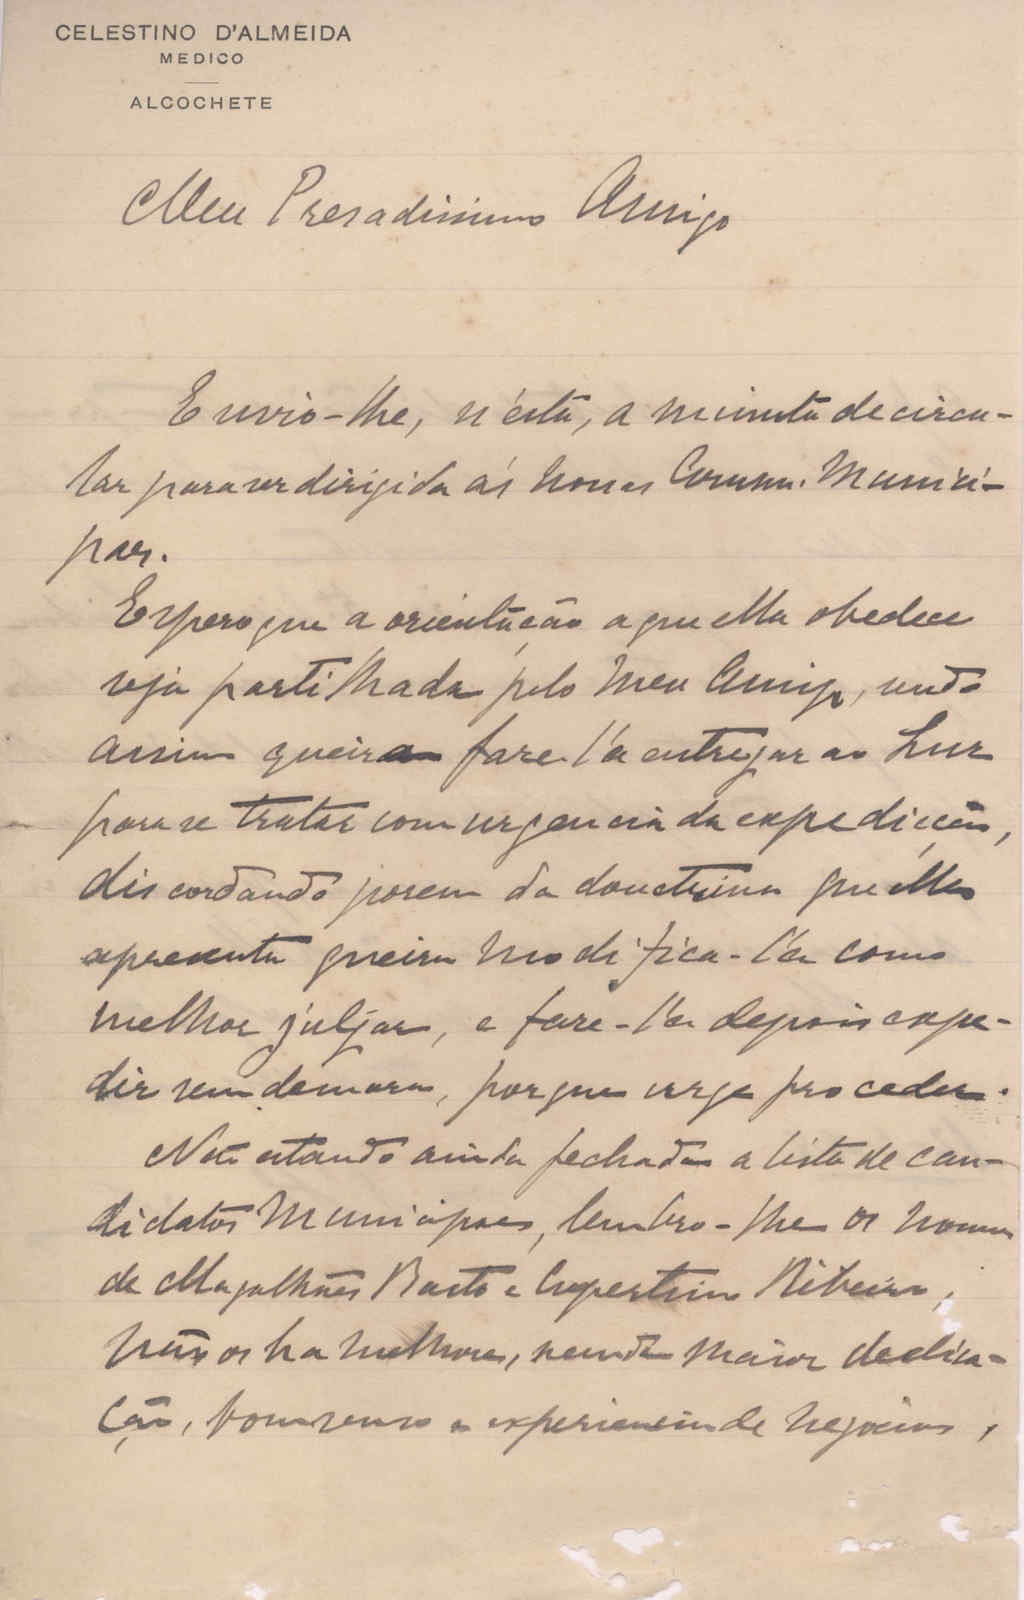 CELESTINO D'ALMEIDA
MEDICO
ALCOCHETE
Meu Presadissimo Amigo
Envio-lhe, n'esta, a minuta de circu-
lar para ser dirigida ás nossas Comm. Munici-
paes.
Espero que a orientação a que ella obedece
seja partilhada pelo meu Amigo, sendo
assim queira faze-l'a entregar ao Luz
para se tratar com urgencia da expedicção,
discordando porem da douctrina que ella
apresenta queira modifica-l'a como
melhor julgar, e faze-l'a depois expe-
dir sem demora, porque urge proceder.
Não estando ainda fechada a lista de can-
didatos Municipaes, lembro-lhe os nomes
de Magalhães Basto e Cupertino Ribeiro,
não os ha melhores, nem de maior dedica-
ção, bom senso e experiencia de negocios,